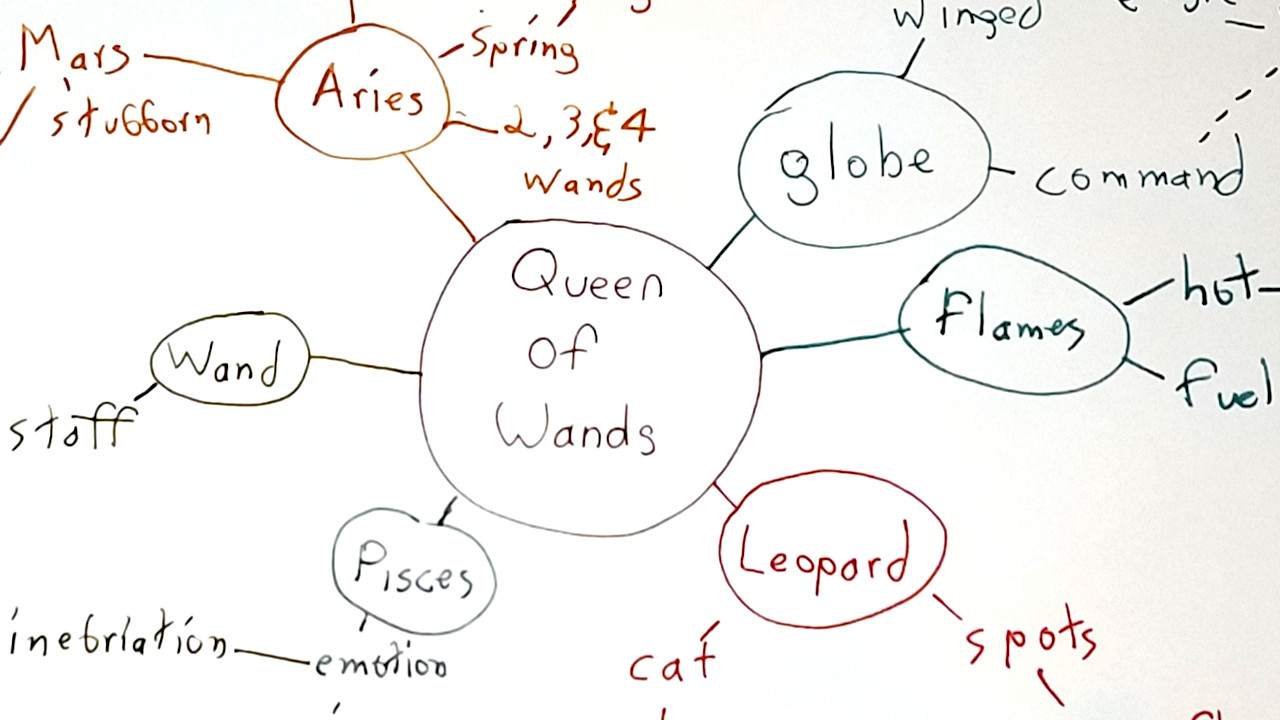 Winged
Mars
Spring
Aries
stubborn
2, 3, & 4
Wands
globe
command
Queen
of
Wands
hot
Flames
fuel
Wand
staff
Leopard
Pisces
inebriation
emotion
cat
spots